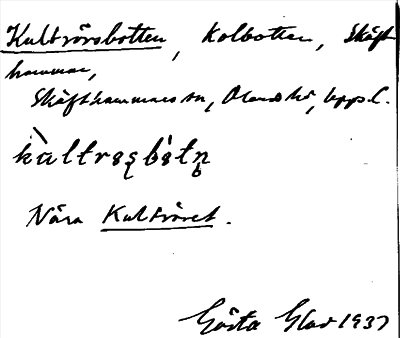 Kultrörsbotten, Kolbotten, Skäft-
hammar,
Skäfthammars sn, Olands hd, Upps. l.
kùltrǝsbòtn̥
Nära Kultröret.
Gösta Glad 1937